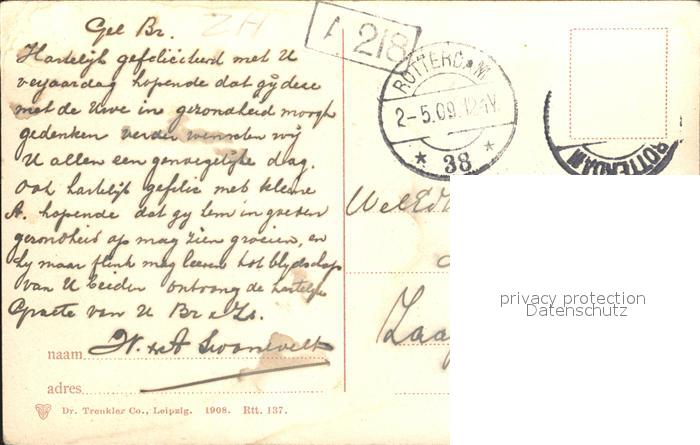 Gel Br.
ZH
Hartelijk gefeliciteerd met U
verjaardag hopende dat gij deze
met de Uwe in gezondheid moogt
gedenken verder wenschen wij
U allen een genoegelijke dag.
Ook hartelijk gefelic met kleine
A. hopende dat gy hem in groten
gezondheid op mag zien groeien, en
hy maar flink mag leeren tot blydschap
van U beiden ontvang de hartelijke
Groete van U Br & Zs.
naam H. & A Swaneveld
adres
Dr. Trenkler Co., Leipzig. 1908. Rtt. 137.
1 218
ROTTERDAM
2-5.09.12-1V.
* 38 *
ROTTERDAM
WelEd
Zaa
privacy protection
Datenschutz